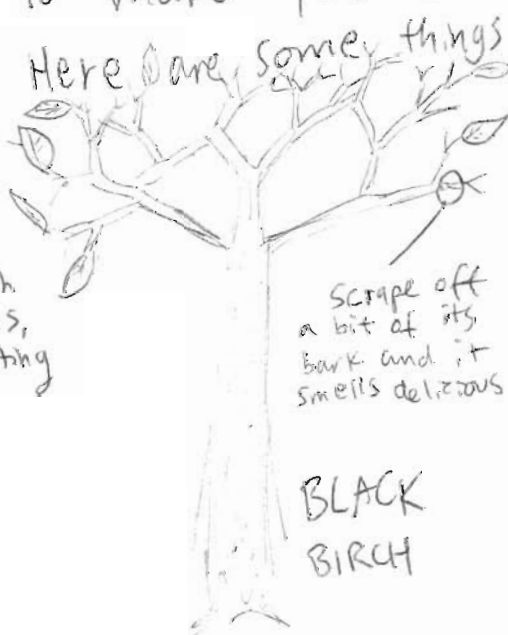 Here are some things
s,
ting
scrape off
a bit of its
bark and it
smells delicious
BLACK
BIRCH